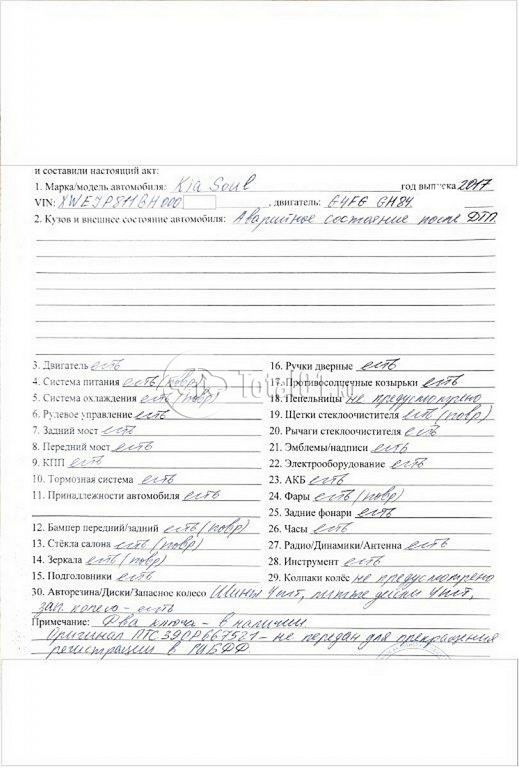 и составили настоящий акт:
1. Марка/модель автомобиля: Kia Soul год выпуска 2017
VIN: XWEJP811BH000 , двигатель: G4FG GH84
2. Кузов и внешнее состояние автомобиля: Аварийное состояние после ДТП
3. Двигатель есть
4. Система питания есть (повр)
5. Система охлаждения есть (повр)
6. Рулевое управление есть
7. Задний мост есть
8. Передний мост есть
9. КПП есть
10. Тормозная система есть
11. Принадлежности автомобиля есть
12. Бампер передний/задний есть (повр)
13. Стёкла салона есть (повр)
14. Зеркала есть (повр)
15. Подголовники есть
16. Ручки дверные есть
17. Противосолнечные козырьки есть
18. Пепельницы не предусмотрено
19. Щетки стеклоочистителя есть (повр)
20. Рычаги стеклоочистителя есть
21. Эмблемы/надписи есть
22. Электрооборудование есть
23. АКБ есть
24. Фары есть (повр)
25. Задние фонари есть
26. Часы есть
27. Радио/Динамики/Антенна есть
28. Инструмент есть
29. Колпаки колёс не предусмотрено
30. Авторезина/Диски/Запасное колесо Шины 4шт, литые диски 4шт,
зап. колесо - есть
Примечание: Два ключа - в наличии
Оригинал ПТС 39ОР667521 - не передан для прекращения
регистрации в ГИБДД
Total01.ru